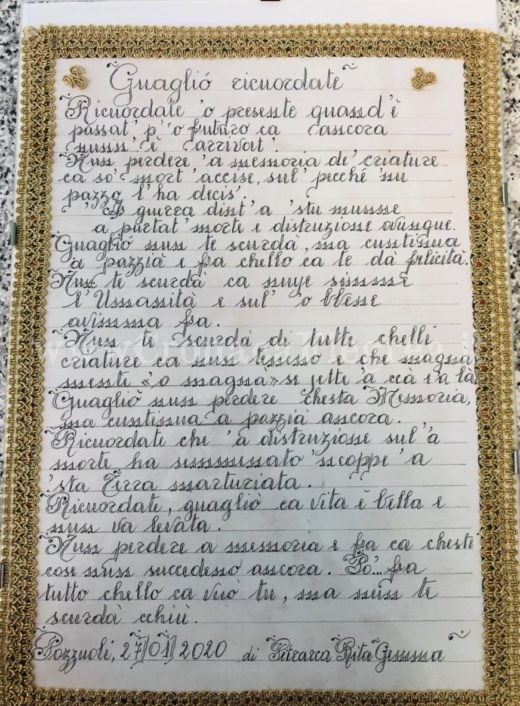 Guaglió ricuordate
Ricuordate 'o presente quand'è
passat' p' 'o futuro ca ancora
nunn' è arrivat'.
Nun perdere 'a memoria de' criature
ca so' mort' accise, sul' pecché nu
pazzo l'ha decis'.
'A guerra dint' a 'stu munno
a purtat' morte e distruzione ovunque.
Guagliò nun te scurdà, ma cuntinua
a pazzià e fa chello ca te dà felicità.
Nun te scurdà ca nuje simme
l'Umanità e sul' 'o bbene
avimma fa.
Nun te scurdà di tutte chelli
criature ca nun tenono e che magna
mente «'o magna» se jette 'a ccà e 'a là.
Guagliò nun perdere chesta Memoria,
ma cuntinua a pazzià ancora.
Ricuordate che 'a distruzione sul' 'a
morte ha semmenato 'ncoppe 'a
'sta Terra marturiata.
Ricuordate, guagliò ca vita è bella e
nun va levata.
Nun perdere a memoria e fa ca cheste
cose nun succedeno ancora. Po'... fa
tutto chello ca vuò tu, ma nun te
scurdà cchiù.
Pozzuoli, 27/01/2020 di Petrarca Rita Gemma